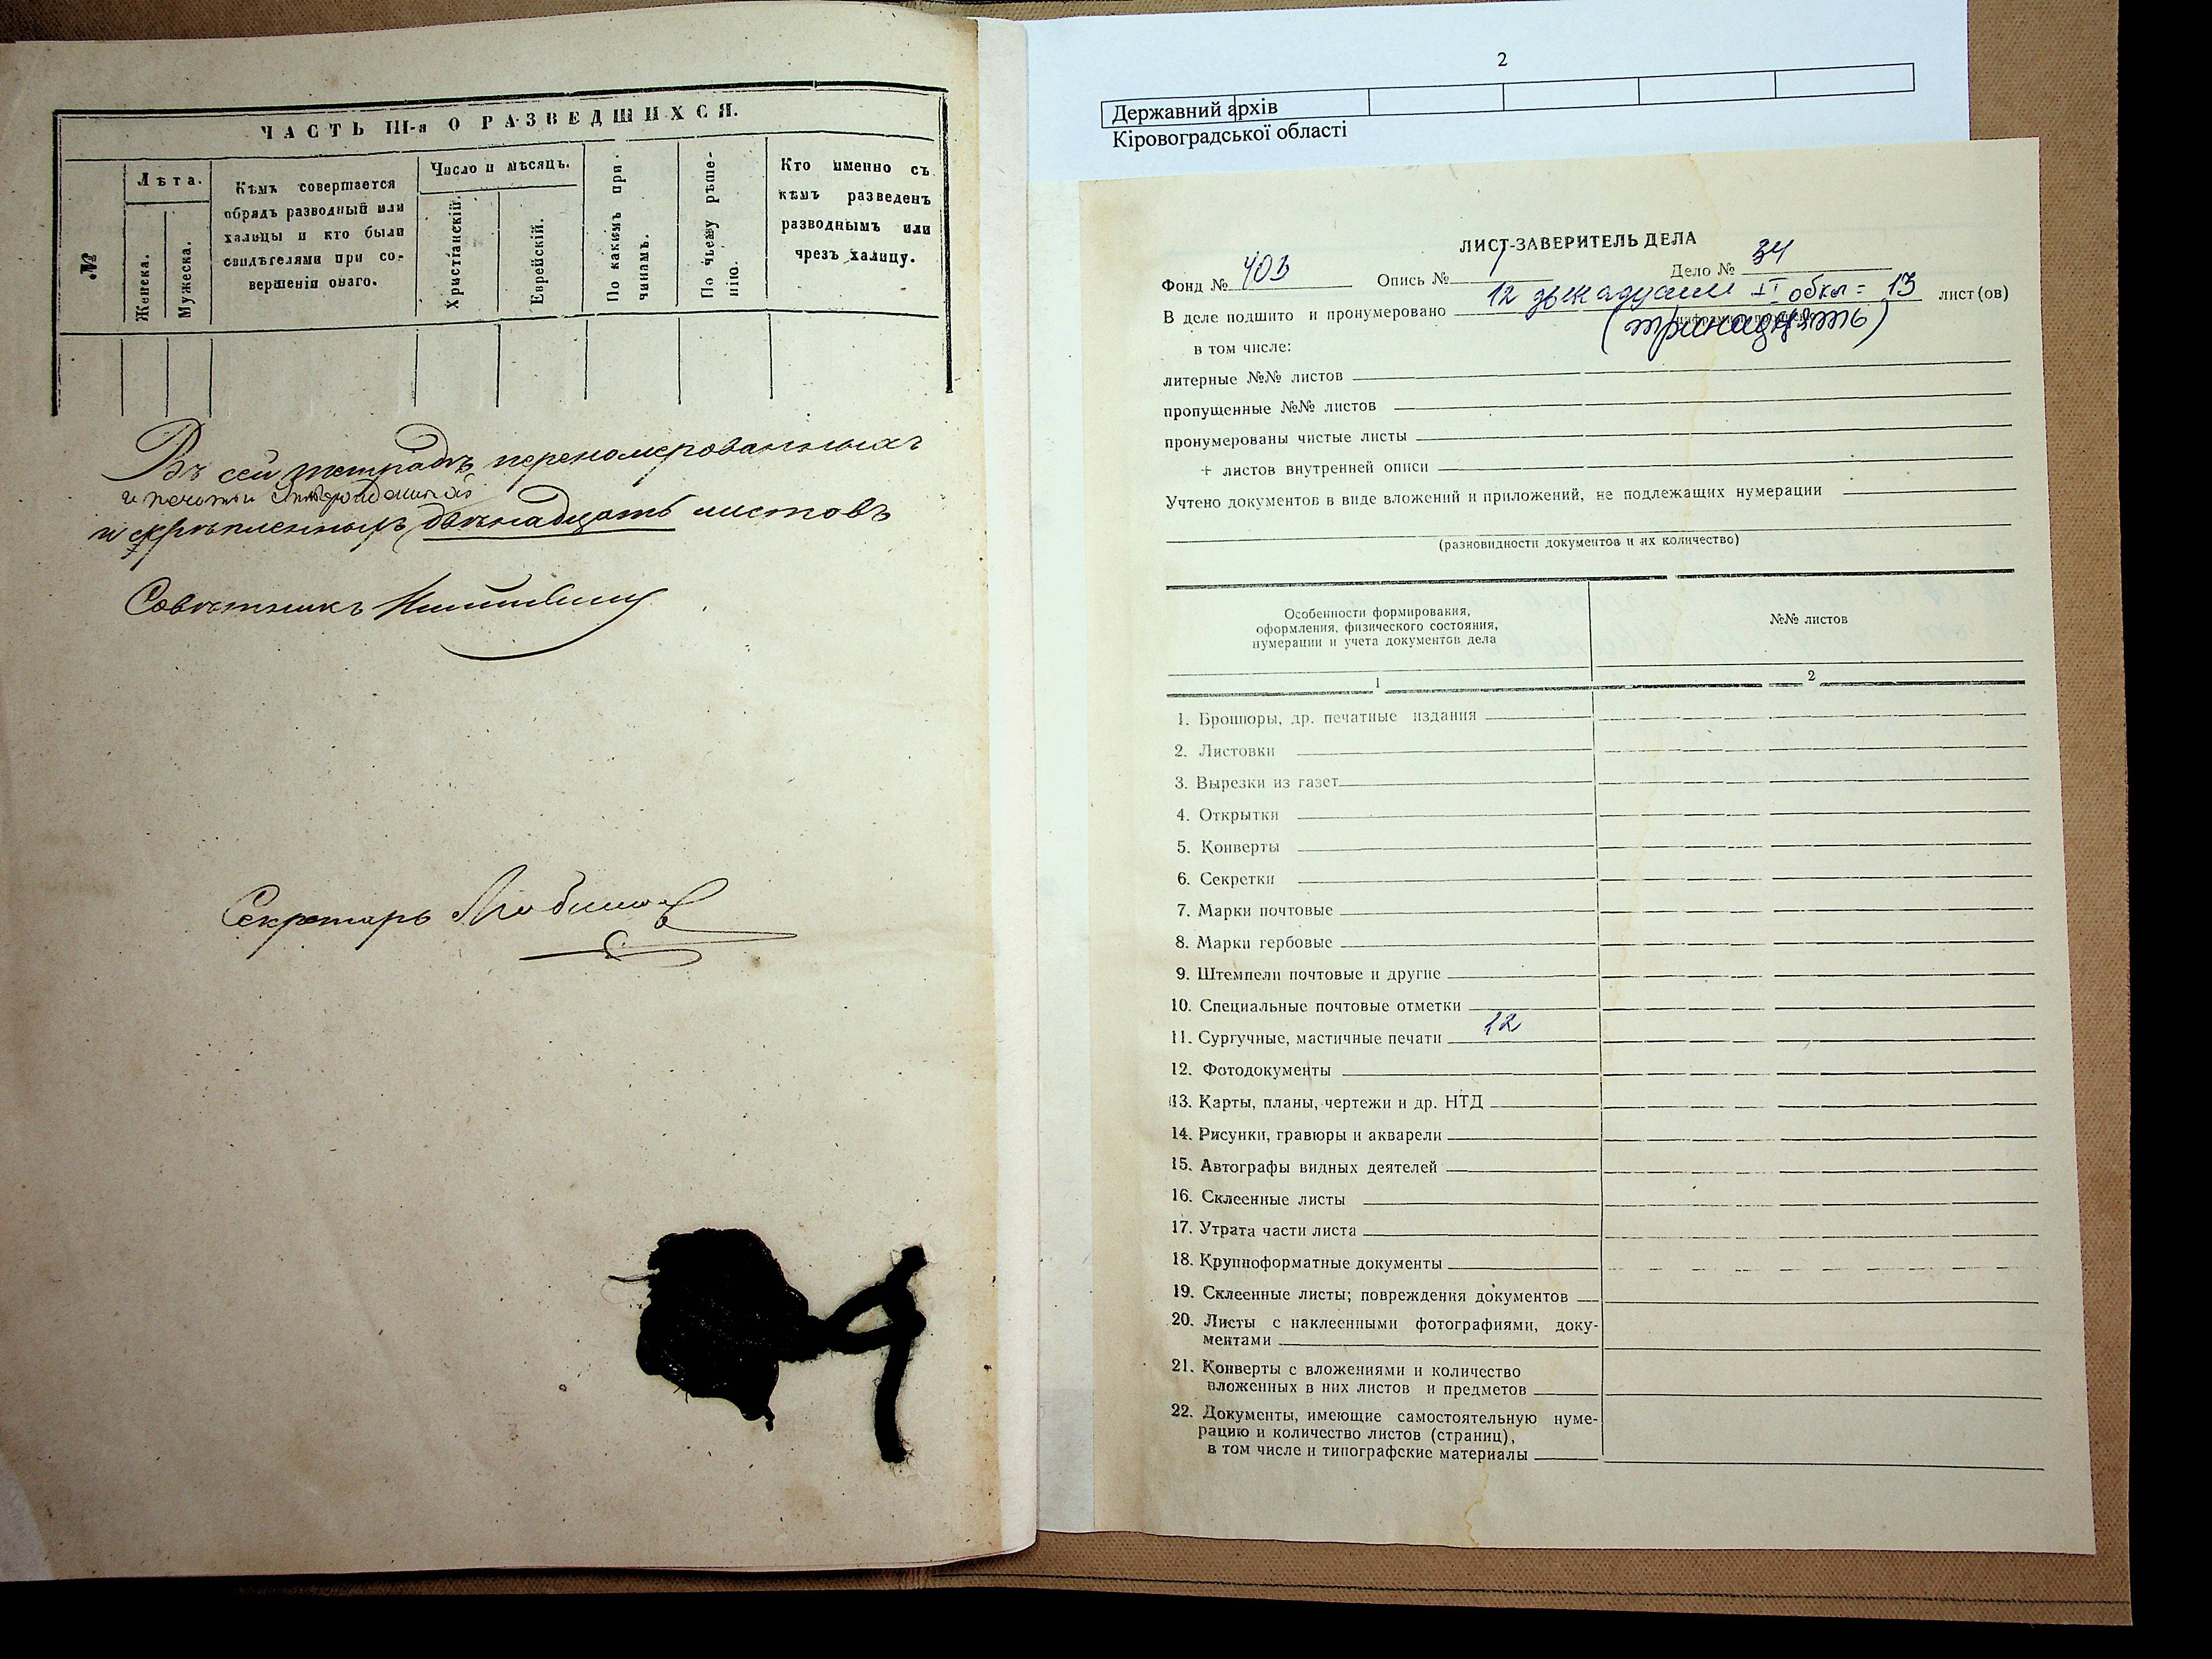 ЧАСТЬ III-я О РАЗВЕДШИХСЯ.
№
Лѣта.
Женска.
Мужеска.
Кѣмъ совершается
обрядъ разводный или
халицы и кто были
свидѣтелями при со-
вершеніи онаго.
Число и мѣсяцъ.
Христіанскій.
Еврейскій.
По какимъ при-
чинамъ.
По чьему рѣше-
нію.
Кто именно съ
кѣмъ разведенъ
разводнымъ или
чрезъ халицу.
Въ сей тетрадѣ перенумерованныхъ
и печатью
и скрѣпленныхъ двѣнадцать листовъ
Совѣтникъ
Секретарь
2
Державний архів
Кіровоградської області
ЛИСТ-ЗАВЕРИТЕЛЬ ДЕЛА
Фонд № 403 Опись № 1 Дело № 34
В деле подшито и пронумеровано 12 обкл = 13 лист(ов)
(тринадцять)
в том числе:
литерные №№ листов
пропущенные №№ листов
пронумерованы чистые листы
+ листов внутренней описи
Учтено документов в виде вложений и приложений, не подлежащих нумерации
(разновидности документов и их количество)
Особенности формирования,
оформления, физического состояния,
нумерации и учета документов дела
№№ листов
1
2
1. Брошюры, др. печатные издания
2. Листовки
3. Вырезки из газет
4. Открытки
5. Конверты
6. Секретки
7. Марки почтовые
8. Марки гербовые
9. Штемпели почтовые и другие
10. Специальные почтовые отметки
11. Сургучные, мастичные печати 12
12. Фотодокументы
13. Карты, планы, чертежи и др. НТД
14. Рисунки, гравюры и акварели
15. Автографы видных деятелей
16. Склеенные листы
17. Утрата части листа
18. Крупноформатные документы
19. Склеенные листы; повреждения документов
20. Листы с наклеенными фотографиями, доку-
ментами
21. Конверты с вложениями и количество
вложенных в них листов и предметов
22. Документы, имеющие самостоятельную нуме-
рацию и количество листов (страниц),
в том числе и типографские материалы